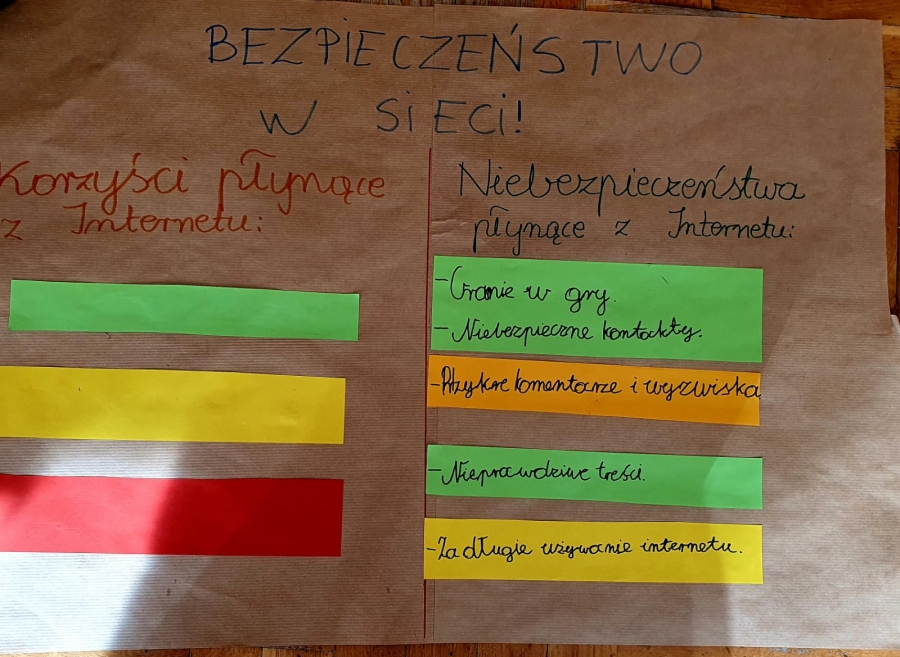 BEZPIECZEŃSTWO
W SIECI!
Korzyści płynące
z Internetu:
Niebezpieczeństwa
płynące z Internetu:
- Granie w gry.
- Niebezpieczne kontakty.
- Przykre komentarze i wyzwiska
- Nieprawdziwe treści.
- Za długie używanie internetu.